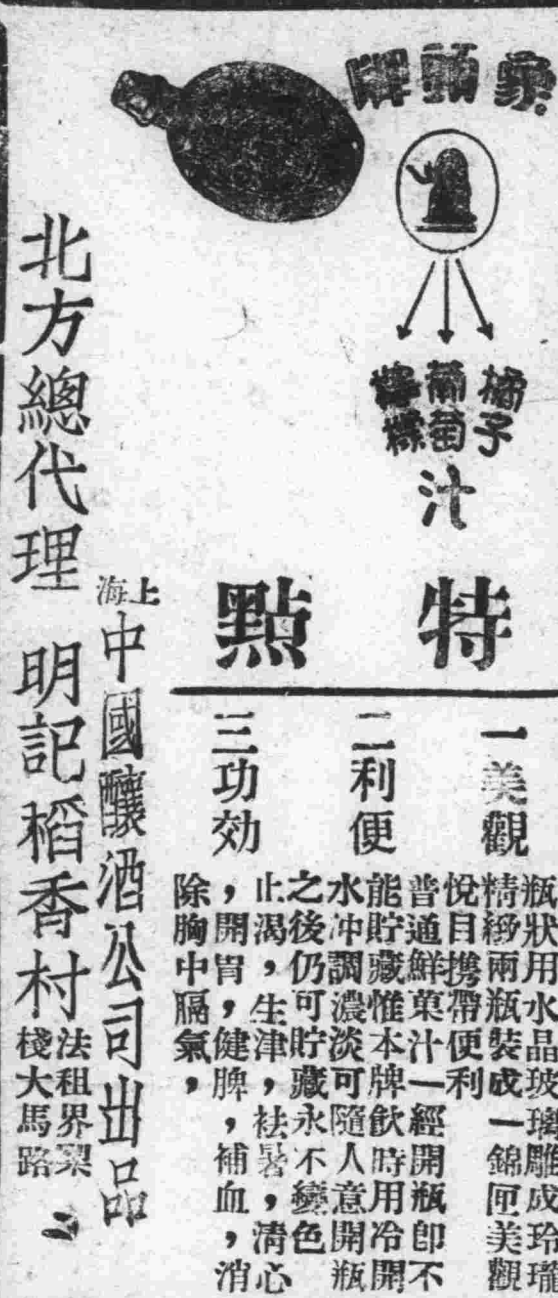 象頭牌
橘子
葡萄
檸檬
汁
特點
一美觀
瓶狀用水晶玻璃雕成玲瓏
精緻兩瓶裝成一錦匣美觀
悅目攜帶便利
二利便
普通鮮菓汁一經開瓶即不
能貯藏惟本牌飲時用冷開
水冲調濃淡可隨人意開瓶
之後仍可貯藏永不變色
三功効
止渴，生津，袪暑，清心
，開胃，健脾，補血，消
除胸中膈氣，
上海
中國釀酒公司出品
北方總代理 明記稻香村
法租界梨
棧大馬路